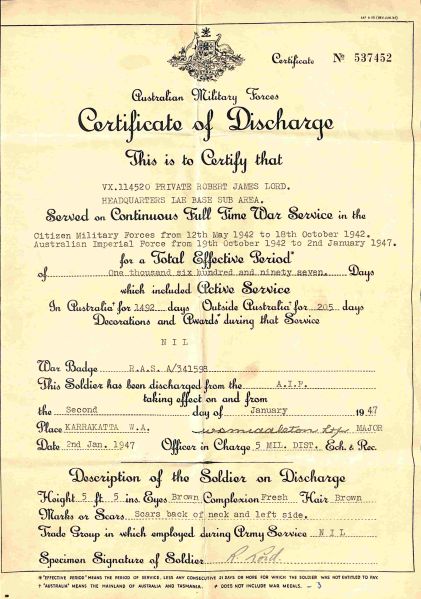 AAF A 55 (REV. JUN. 45)
Certificate Nº 537452
Australian Military Forces
Certificate of Discharge
This is to Certify that
VX.114520 PRIVATE ROBERT JAMES LORD.
HEADQUARTERS LAE BASE SUB AREA.
Served on Continuous Full Time War Service in the
Citizen Military Forces from 12th May 1942 to 18th October 1942.
Australian Imperial Force from 19th October 1942 to 2nd January 1947.
for a Total Effective Period*
of One thousand six hundred and ninety seven. Days
which included Active Service
In Australia† for 1492 days Outside Australia† for 205 days
Decorations and Awards♦ during that Service
NIL
War Badge R.A.S. A/341598
This Soldier has been discharged from the A.I.F.
taking effect on and from
the Second day of January 1947
Place KARRAKATTA W.A. MAJOR
Date 2nd Jan. 1947 Officer in Charge 5 MIL. DIST. Ech. & Rec.
Description of the Soldier on Discharge
Height 5 ft. 5 ins. Eyes Brown Complexion Fresh Hair Brown
Marks or Scars Scars back of neck and left side.
Trade Group in which employed during Army Service NIL
Specimen Signature of Soldier R. Lord.
* "EFFECTIVE PERIOD" MEANS THE PERIOD OF SERVICE, LESS ANY CONSECUTIVE 21 DAYS OR MORE FOR WHICH THE SOLDIER WAS NOT ENTITLED TO PAY.
† "AUSTRALIA" MEANS THE MAINLAND OF AUSTRALIA AND TASMANIA. ♦ DOES NOT INCLUDE WAR MEDALS. - 3